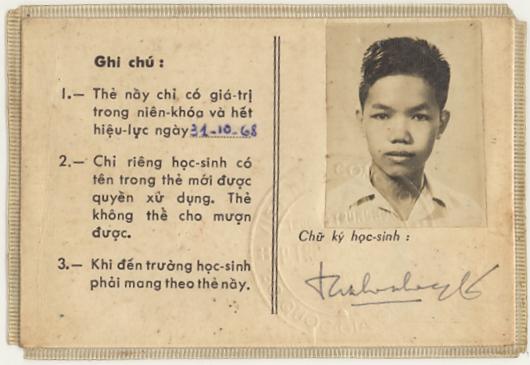 Ghi chú :
1.— Thẻ nầy chỉ có giá-trị
trong niên-khóa và hết
hiệu-lực ngày 31-10-68
2.— Chỉ riêng học-sinh có
tên trong thẻ mới được
quyền xử dụng. Thẻ
không thể cho mượn
được.
3.— Khi đến trường học-sinh
phải mang theo thẻ nầy.
Chữ ký học-sinh :